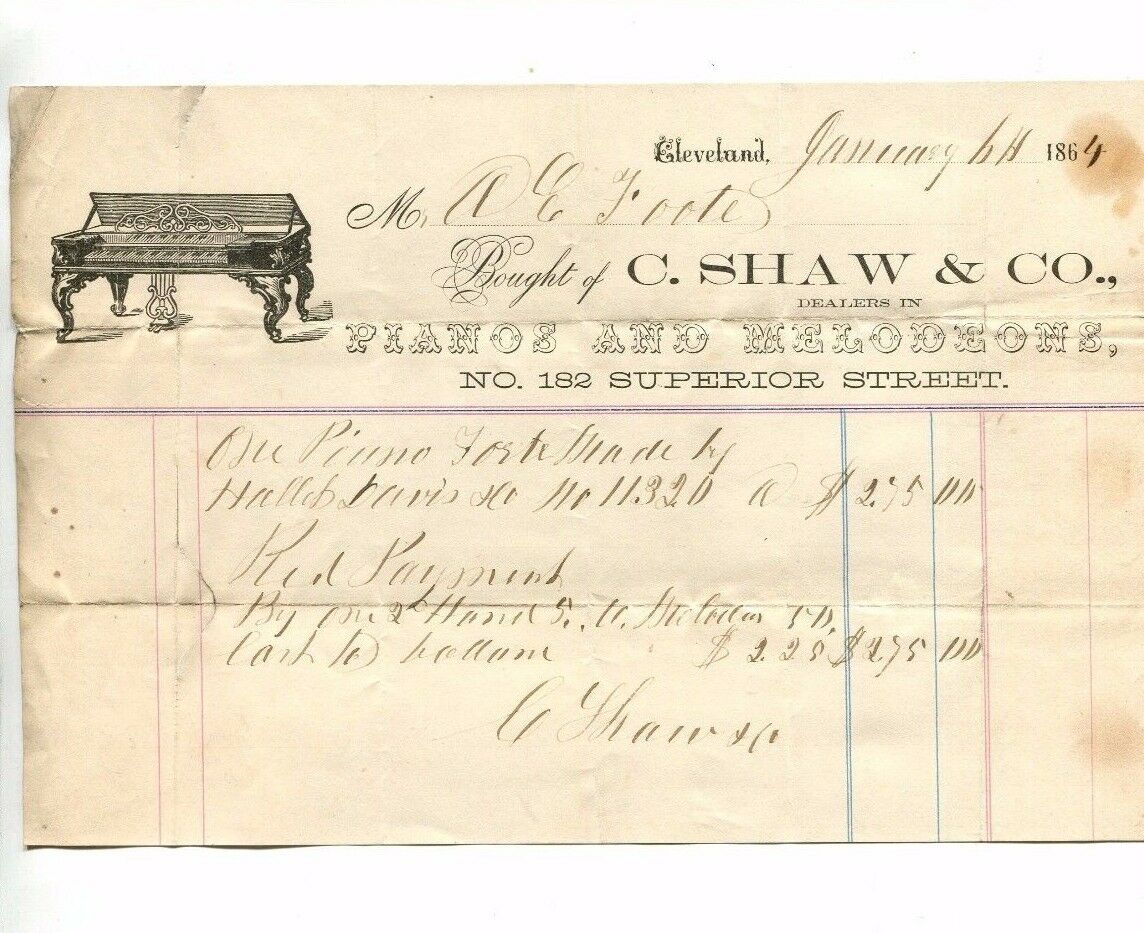 Cleveland, January 6th 1864
M. A E Foote
Bought of C. SHAW & CO.,
DEALERS IN
PIANOS AND MELODEONS,
NO. 182 SUPERIOR STREET.
One Piano Forte Made by
Hallet Davis & Co No 11.320 @ $ 275 00
Recd Payment
By one 2d Hand 5. O. Melodeon 50.
Cash to ballance $ 225 $275 00
C Shaw & Co